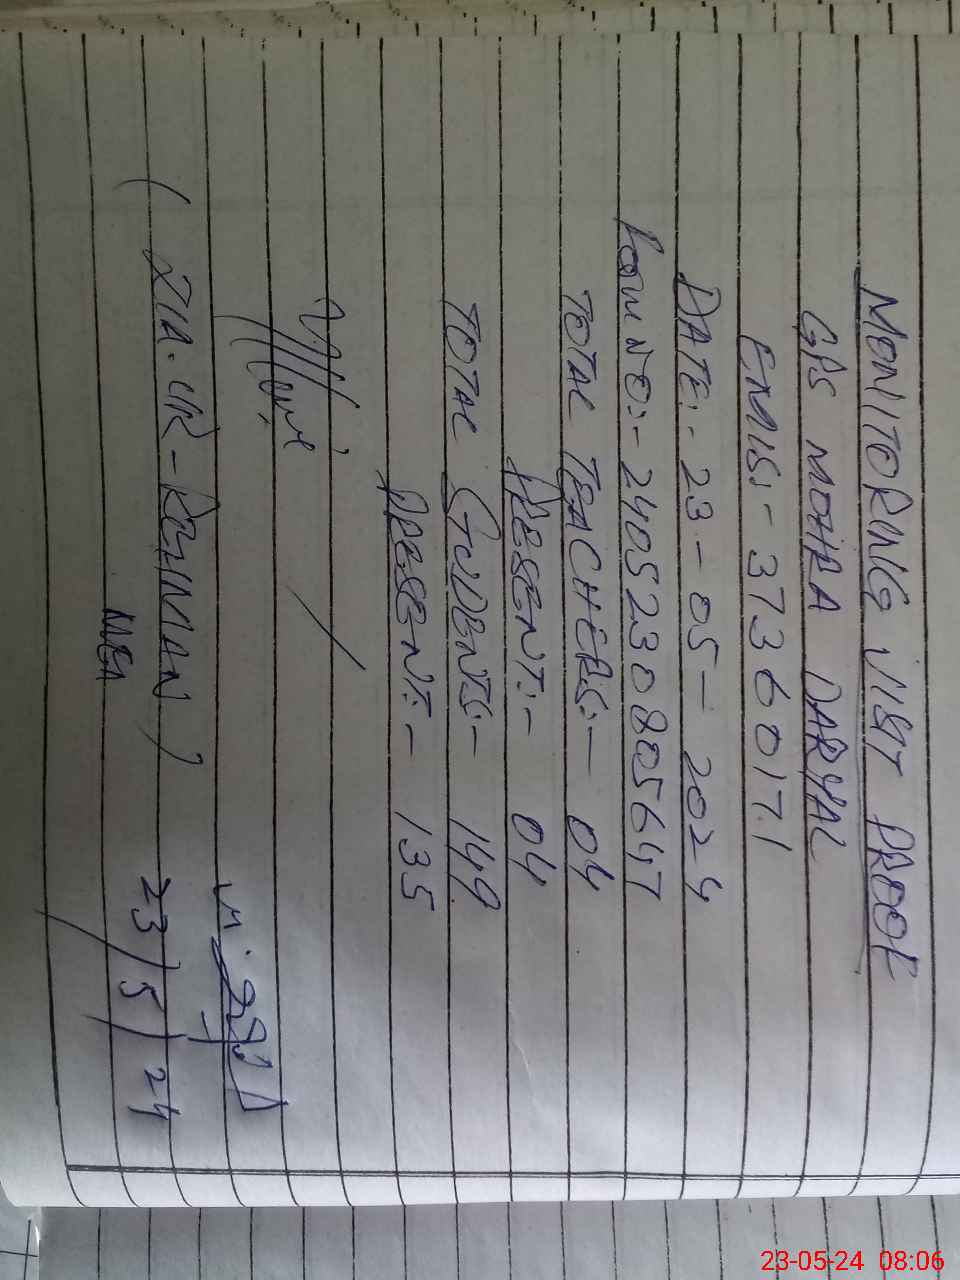 MONITORING VISIT PROOF
GPS MOHRA DARYAL
EMIS:- 37360171
DATE:- 23-05-2024
Form NO:- 2405230805647
TOTAL TEACHERS:- 04
PRESENT:- 04
TOTAL STUDENTS:- 149
PRESENT:- 135
(ZIA-UR-REHMAN)
MEA
23/5/24
23-05-24 08:06